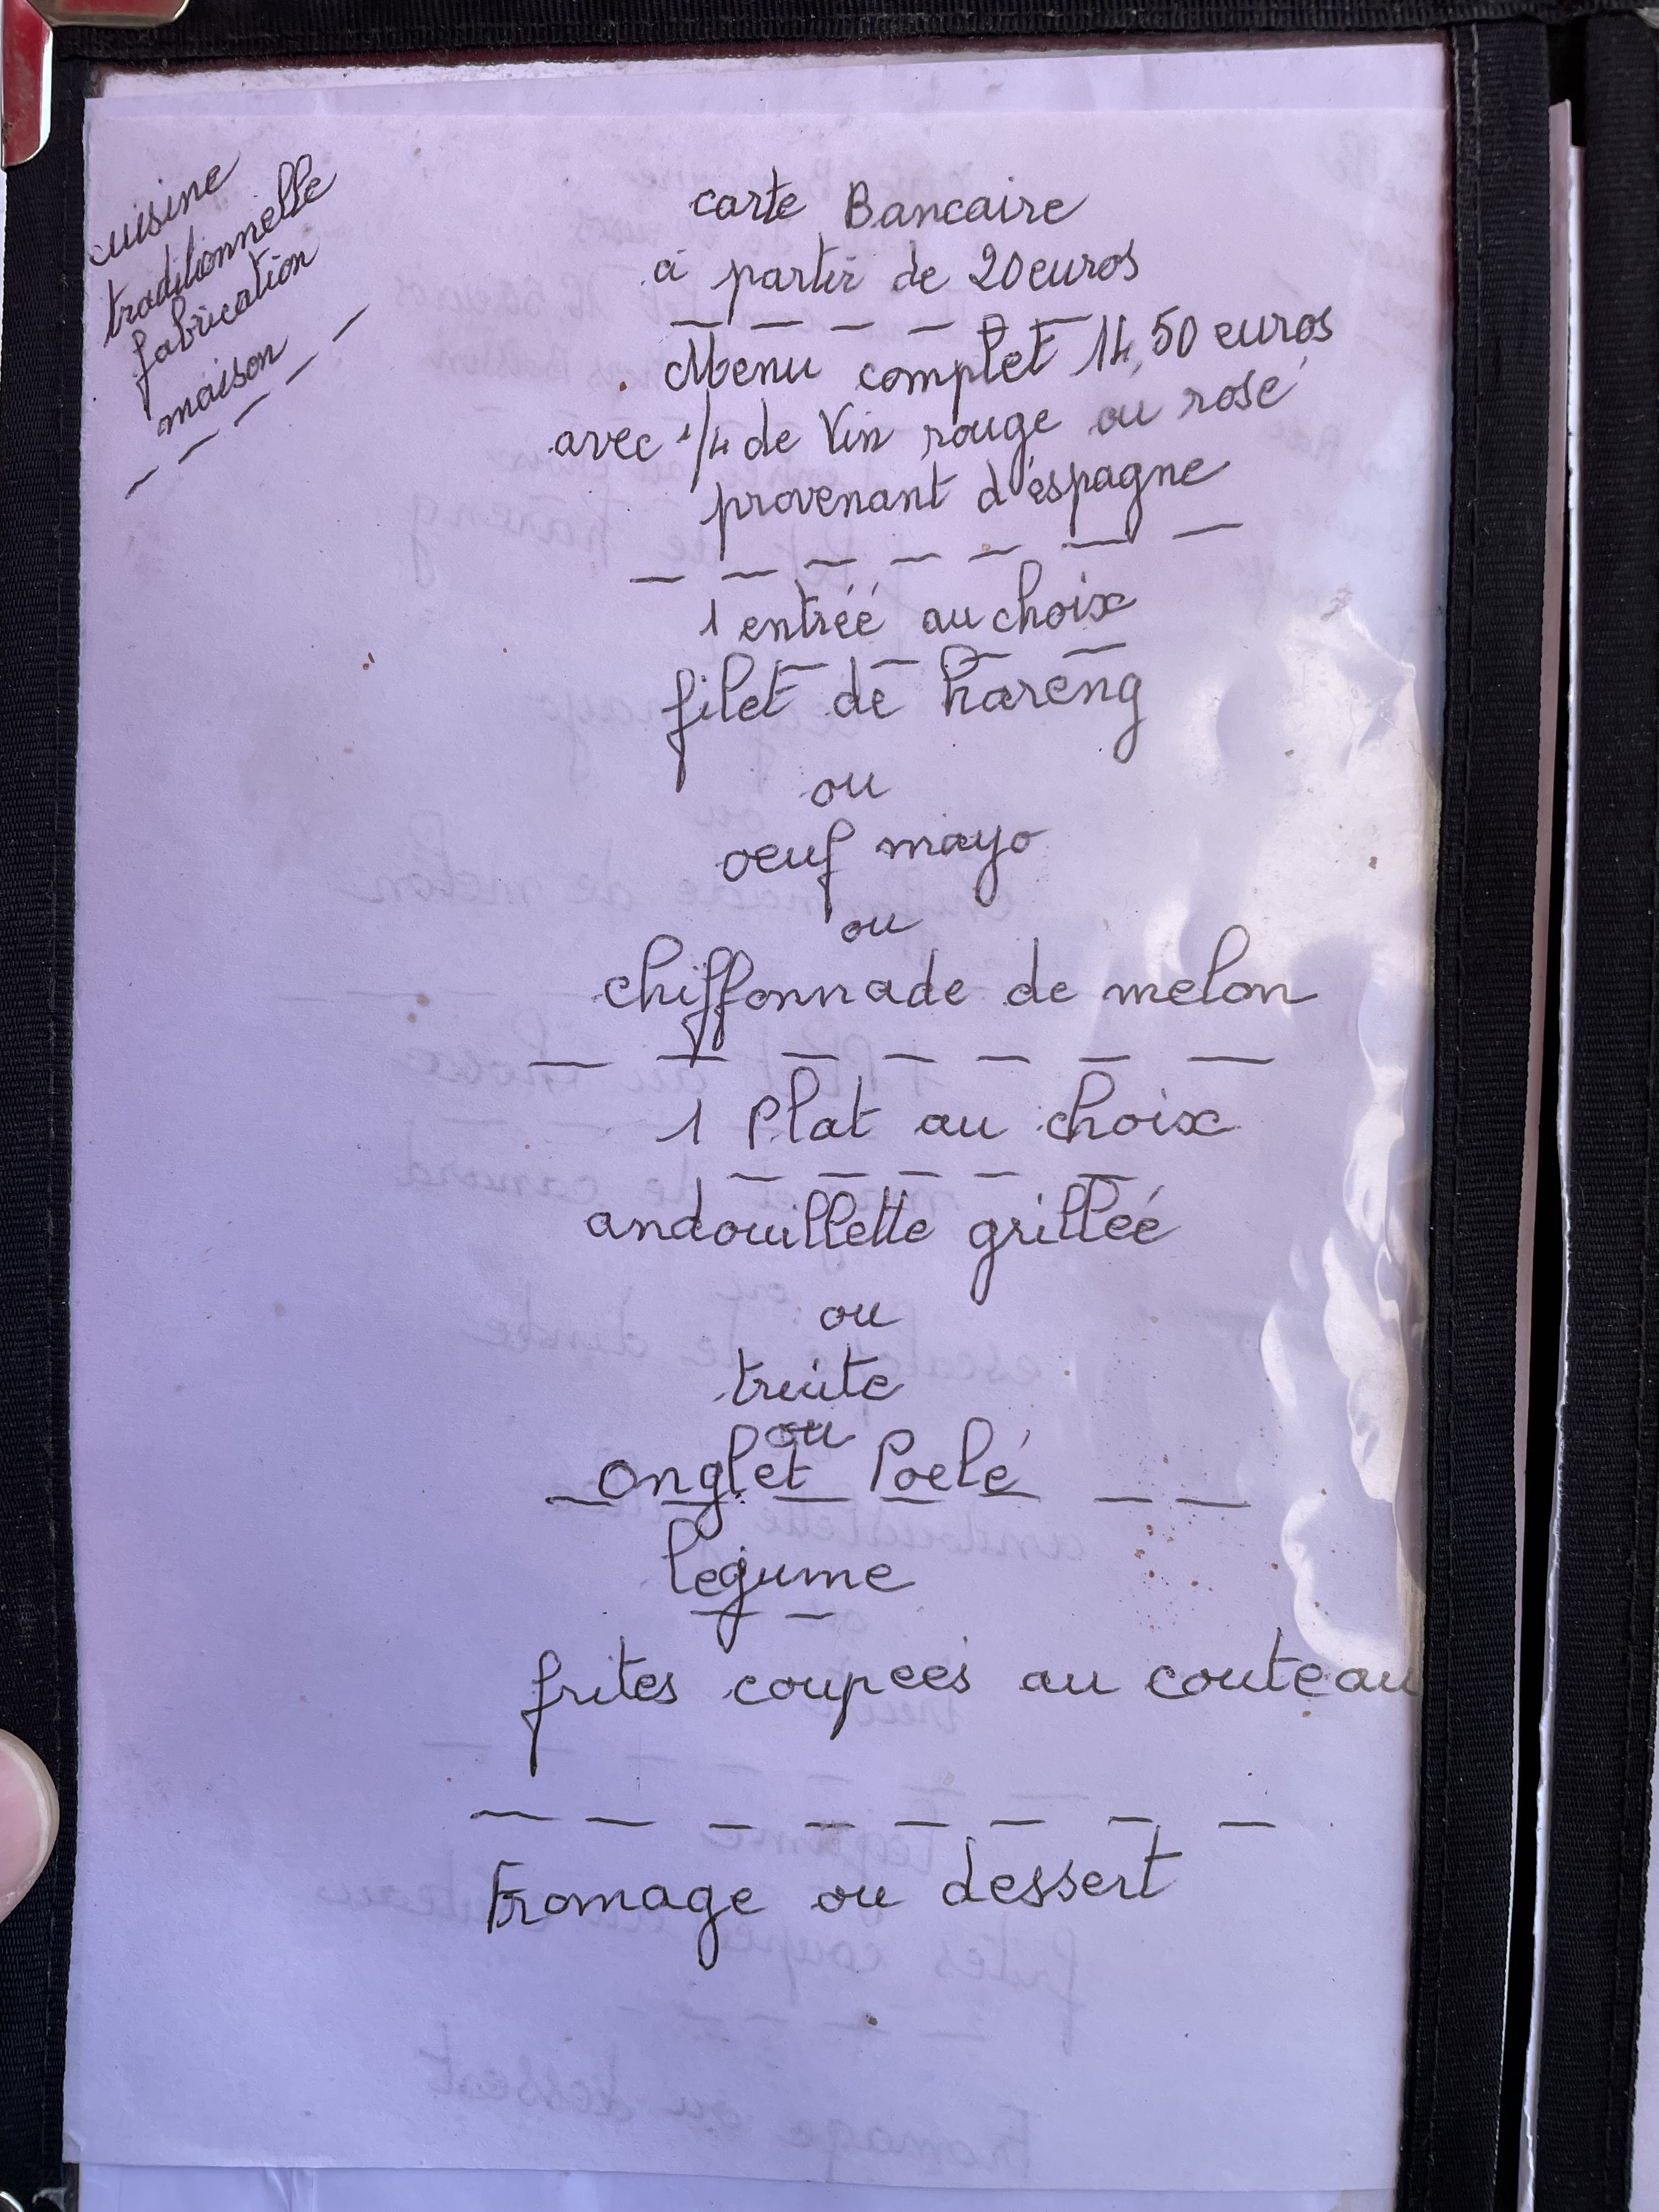 cuisine
traditionnelle
fabrication
maison
carte Bancaire
à partir de 20 euros
Menu complet 14,50 euros
avec 1/4 de Vin rouge ou rosé
provenant d'éspagne
1 entréé au choix
filet de hareng
ou
oeuf mayo
ou
chiffonnade de melon
1 Plat au choix
andouillette grilléé
ou
truite
ou
onglet Poelé
legume
frites coupeés au couteau
Fromage ou dessert